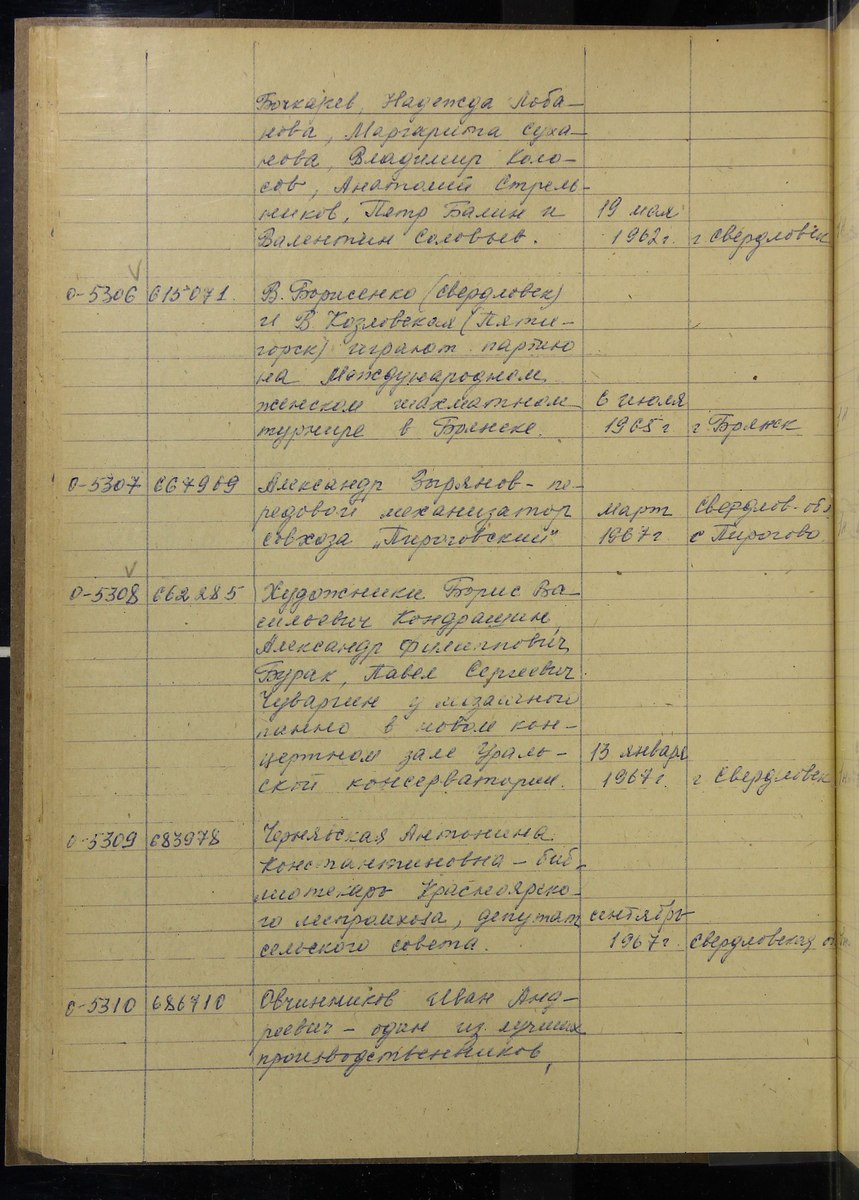 Бочкарев, Надежда Лоба-
нова, Маргарита Суха-
нова, Владимир Коло-
сов, Анатолий Стрель-
ников, Петр Балин и 19 мая
Валентин Соловьев. 1962г. г Свердловск
0-5306 615071. В. Борисенко (Свердловск)
и В Козловская (Пяти-
горск) играют партию
на Международном
женском шахматном 6 июля
турнире в Брянске. 1965г г Брянск
0-5307 667969 Александр Зырянов - пе-
редовой механизатор март Свердлов. обл
совхоза „Пироговский" 1967г с Пирогово
0-5308 662285 Художники Борис Ва-
сильевич Кондрашин,
Александр Филиппович
Бурак, Павел Сергеевич
Чуваргин у мозаичной
панно в новом кон-
цертном зале Ураль- 13 января
ской консерватории. 1967г. г Свердловск
0-5309 683978 Чернявская Антонина
Константиновна - биб-
лиотекарь Красноярско-
го леспромхоза, депутат сентябрь
сельского совета. 1967г. Свердловская
0-5310 686710 Овчинников Иван Анд-
реевич - один из лучших
производственников,